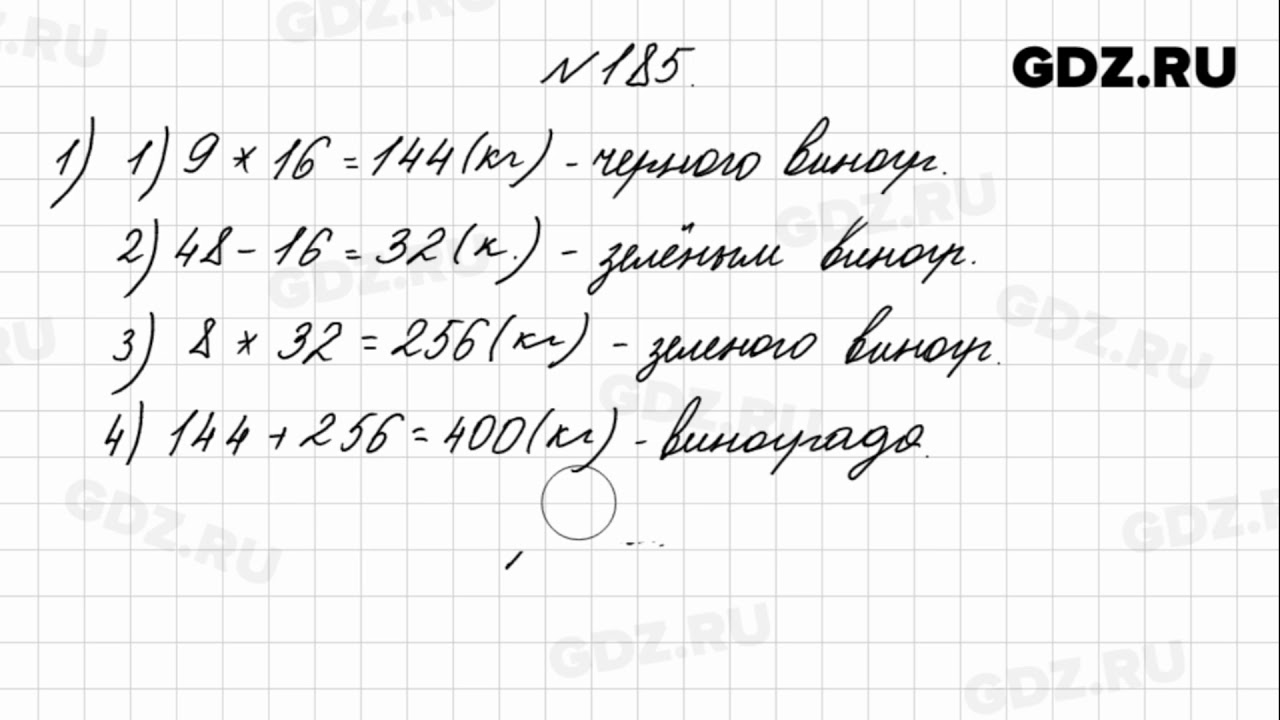 № 185.
GDZ.RU
1) 1) 9 * 16 = 144 (кг) - черного виногр.
2) 48 - 16 = 32 (к.) - зелёным виногр.
3) 8 * 32 = 256 (кг) - зеленого виногр.
4) 144 + 256 = 400 (кг) - винограда.